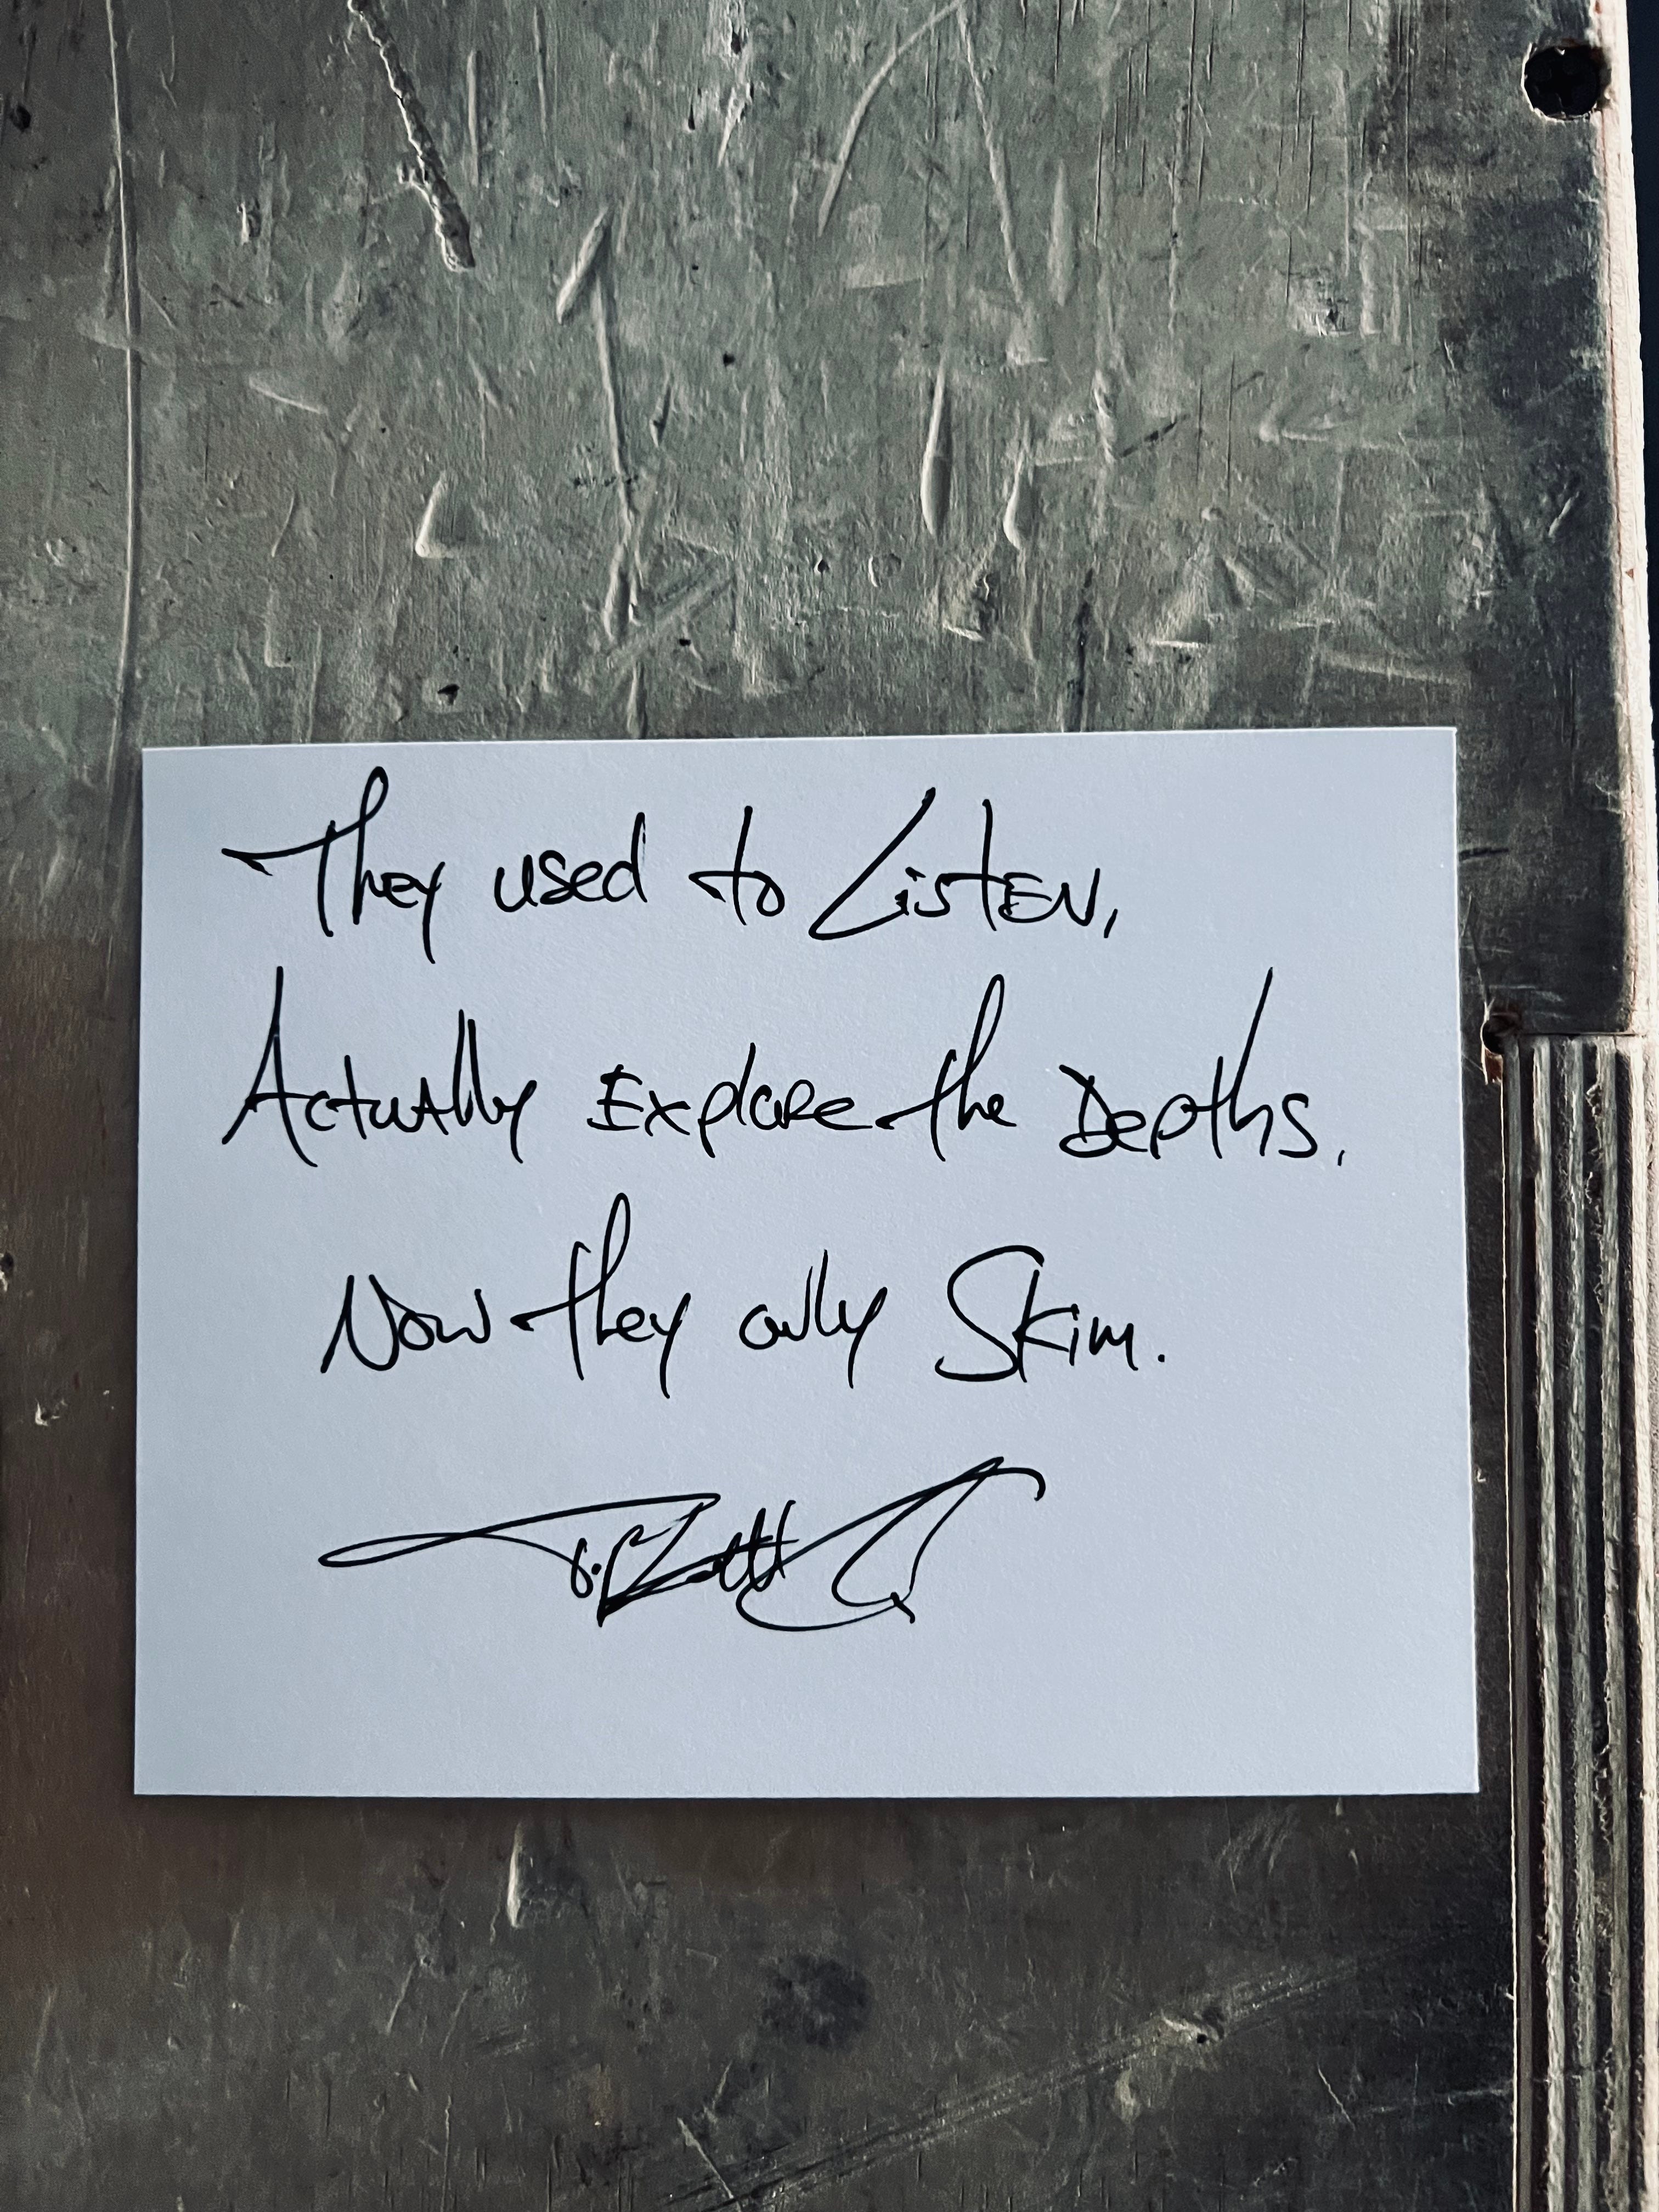 They used to ListEN,
Actually Explore the Depths.
Now they only Skim.